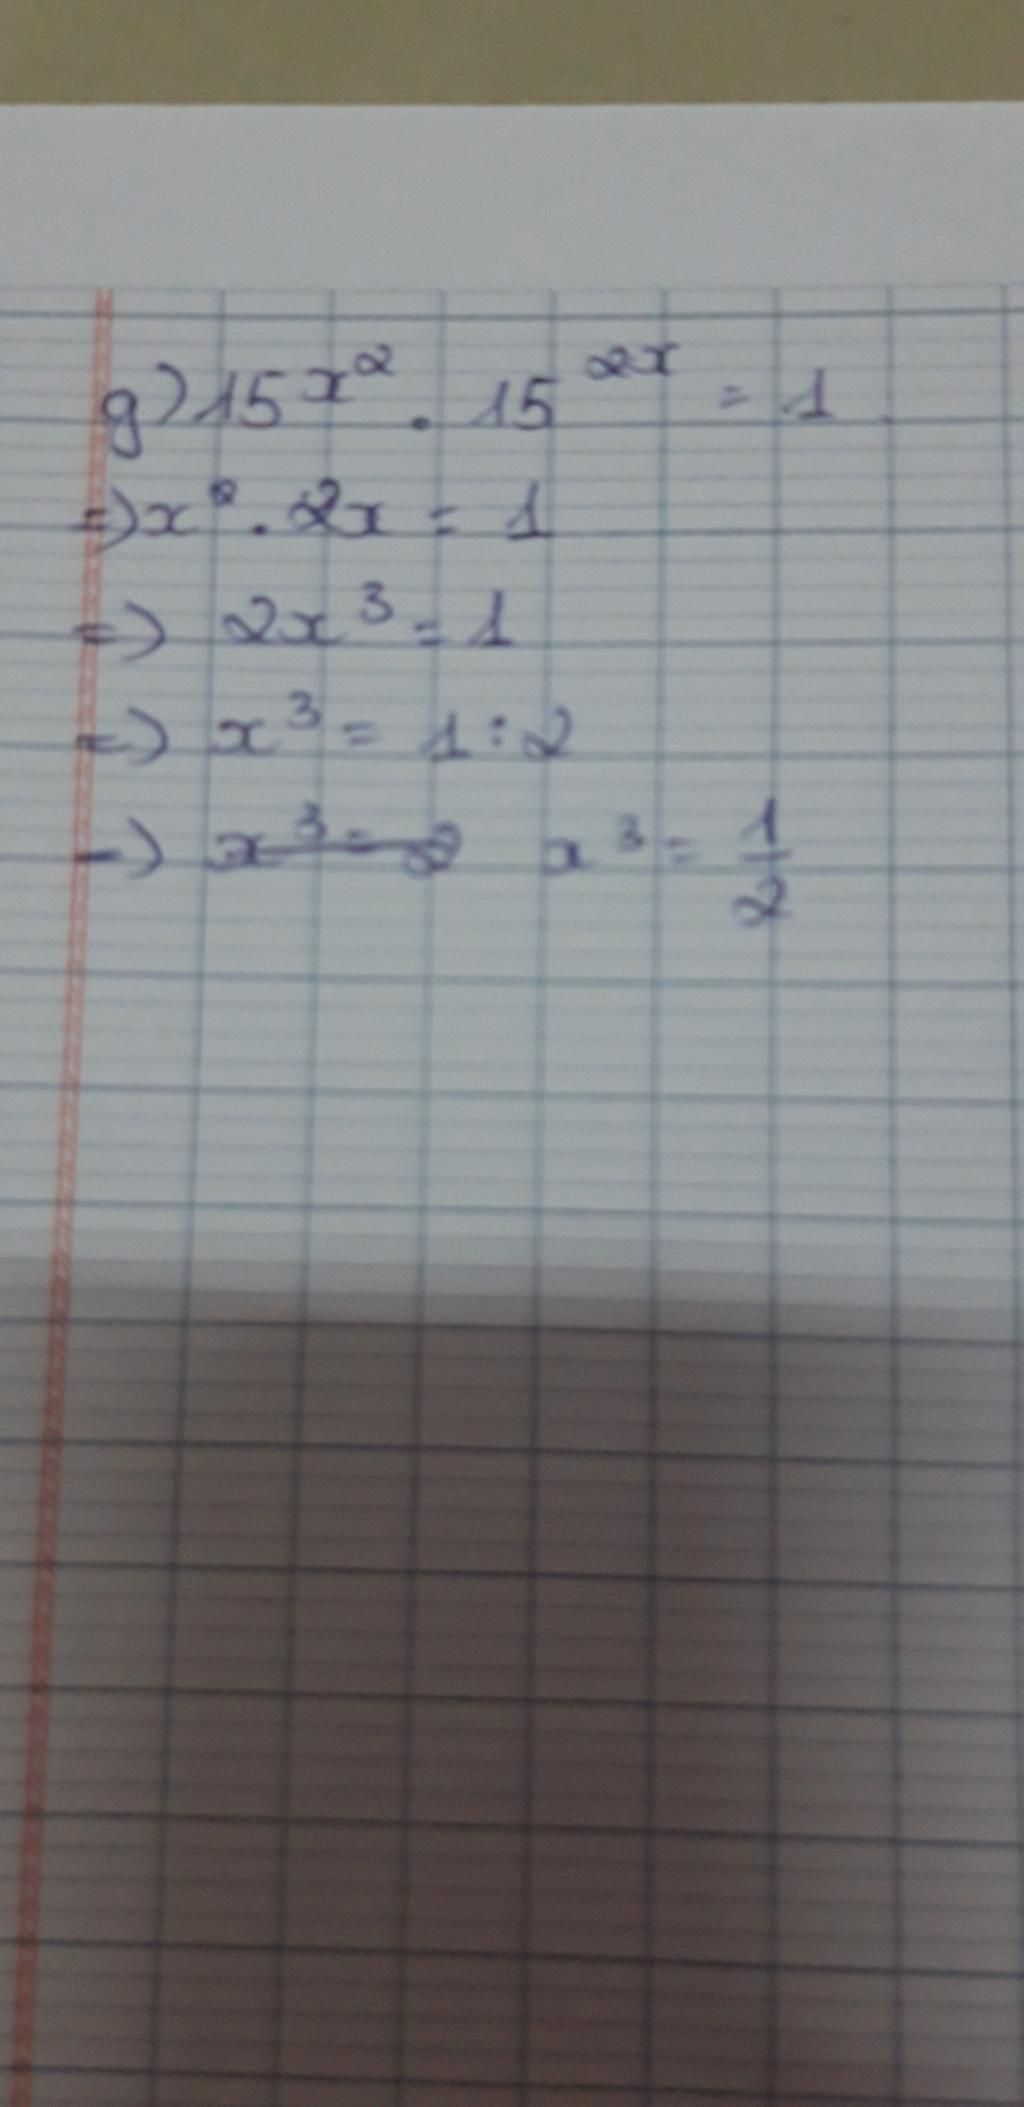 g) 15^x² . 15^2x = 1
=) x² . 2x = 1
=) 2x³ = 1
=) x³ = 1 : 2
-) x³ = 2 x³ = 1/2